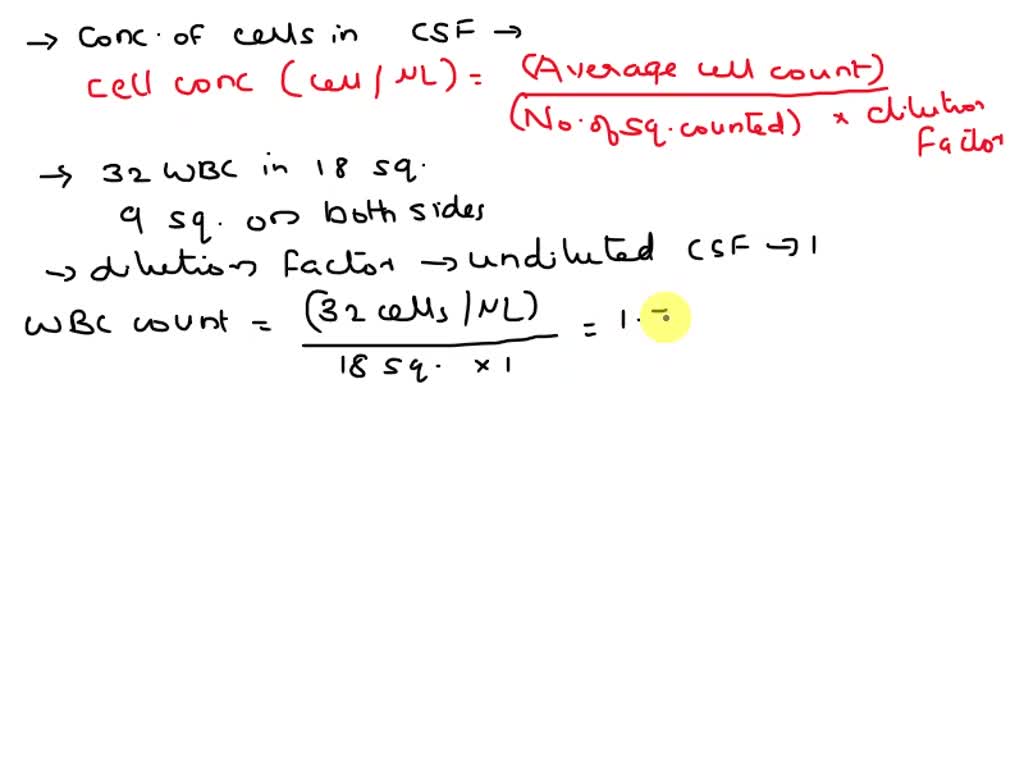 → Conc. of cells in CSF →
cell conc (cell/µL) = (Average cell count)
(No. of sq. counted) × dilution
Factor
→ 32 WBC in 18 sq.
9 sq. on both sides
→ dilution factor → undiluted CSF → 1
WBC count = (32 cells/µL) = 1.
18 sq. × 1